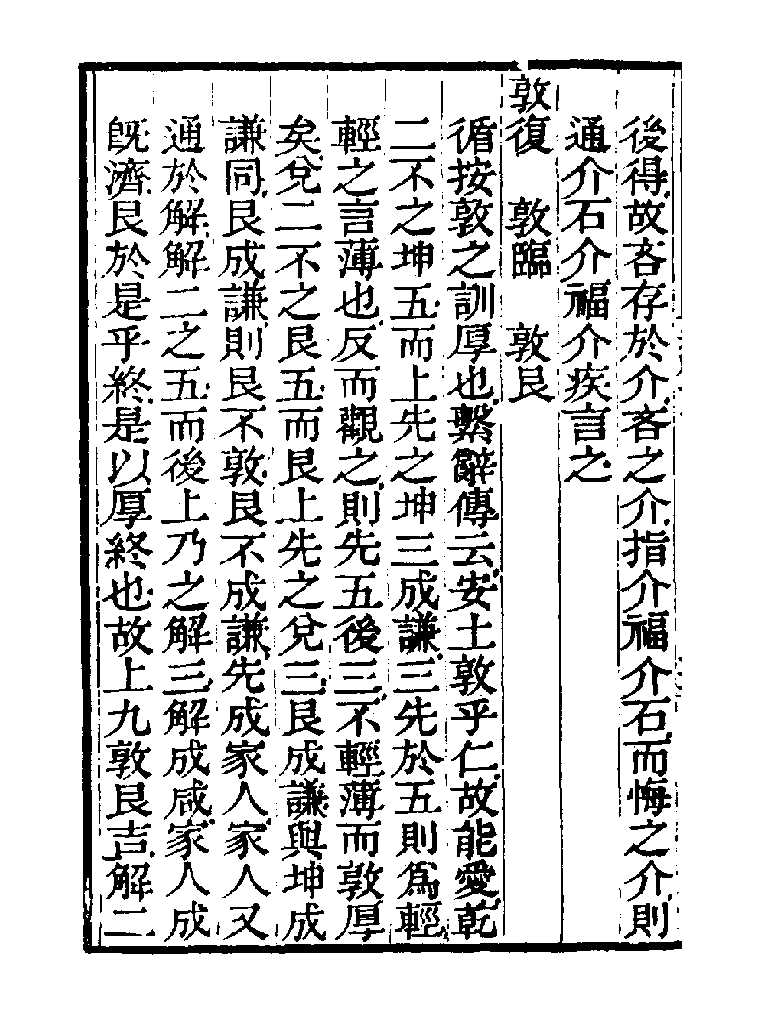 後得故吝存於介吝之介指介福介石而悔之介則
通介石介福介疾言之
敦復　敦臨　敦艮
循按敦之訓厚也繫辭傳云安土敦乎仁故能愛乾
二不之坤五而上先之坤三成謙三先於五則爲輕
輕之言薄也反而觀之則先五後三不輕薄而敦厚
矣兌二不之艮五而艮上先之兌三艮成謙與坤成
謙同艮成謙則艮不敦艮不成謙先成家人家人又
通於解解二之五而後上乃之解三解成咸家人成
旣濟艮於是乎終是以厚終也故上九敦艮吉解二